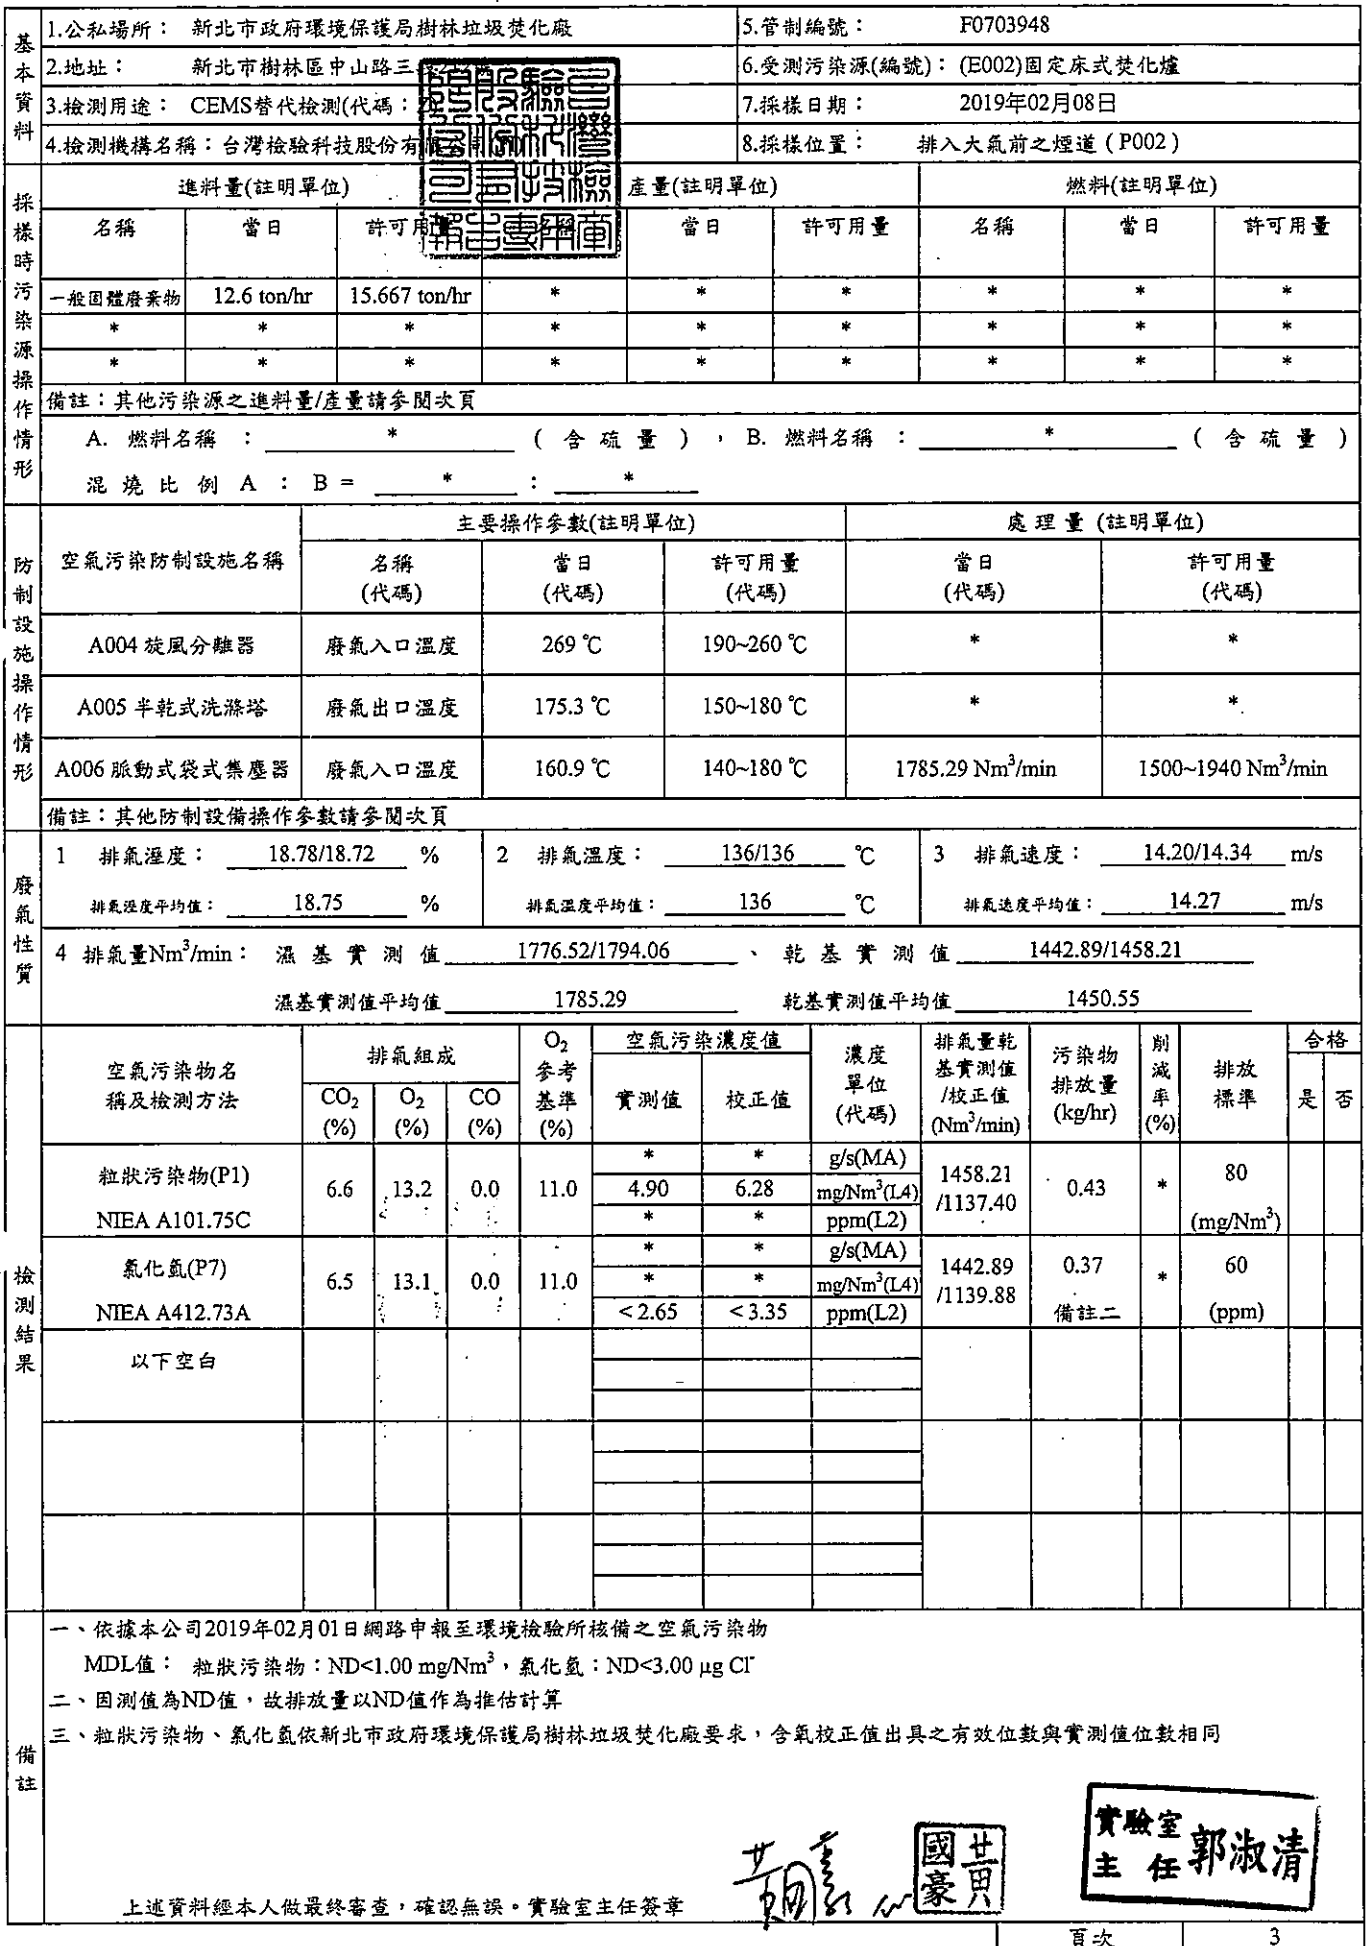 基本資料
1.公私場所： 新北市政府環境保護局樹林垃圾焚化廠
5.管制編號： F0703948
2.地址： 新北市樹林區中山路三
6.受測污染源(編號)： (E002)固定床式焚化爐
3.檢測用途： CEMS替代檢測(代碼：
7.採樣日期： 2019年02月08日
4.檢測機構名稱：台灣檢驗科技股份有
8.採樣位置： 排入大氣前之煙道（P002）
採樣時污染源操作情形
進料量(註明單位) 產量(註明單位) 燃料(註明單位)
名稱 當日 許可用量 當日 許可用量 名稱 當日 許可用量
一般固體廢棄物 12.6 ton/hr 15.667 ton/hr * * * * * *
* * * * * * * * *
* * * * * * * * *
備註：其他污染源之進料量/產量請參閱次頁
A. 燃料名稱 ： * （含硫量），B. 燃料名稱 ： * （含硫量）
混燒比例 A : B = * : *
防制設施操作情形
空氣污染防制設施名稱 主要操作參數(註明單位) 處理量 (註明單位)
名稱(代碼) 當日(代碼) 許可用量(代碼) 當日(代碼) 許可用量(代碼)
A004 旋風分離器 廢氣入口溫度 269 ℃ 190~260 ℃ * *
A005 半乾式洗滌塔 廢氣出口溫度 175.3 ℃ 150~180 ℃ * *
A006 脈動式袋式集塵器 廢氣入口溫度 160.9 ℃ 140~180 ℃ 1785.29 Nm³/min 1500~1940 Nm³/min
備註：其他防制設備操作參數請參閱次頁
廢氣性質
1 排氣溼度： 18.78/18.72 % 2 排氣溫度： 136/136 ℃ 3 排氣速度： 14.20/14.34 m/s
排氣溼度平均值： 18.75 % 排氣溫度平均值： 136 ℃ 排氣速度平均值： 14.27 m/s
4 排氣量Nm³/min： 濕基實測值 1776.52/1794.06 、乾基實測值 1442.89/1458.21
濕基實測值平均值 1785.29 乾基實測值平均值 1450.55
檢測結果
空氣污染物名稱及檢測方法 排氣組成 O₂參考基準(%) 空氣污染濃度值 濃度單位(代碼) 排氣量乾基實測值/校正值(Nm³/min) 污染物排放量(kg/hr) 削減率(%) 排放標準 合格
CO₂(%) O₂(%) CO(%) 實測值 校正值 是 否
粒狀污染物(P1) NIEA A101.75C 6.6 13.2 0.0 11.0 1458.21/1137.40 0.43 * 80 (mg/Nm³)
* * g/s(MA)
4.90 6.28 mg/Nm³(L4)
* * ppm(L2)
氯化氫(P7) NIEA A412.73A 6.5 13.1 0.0 11.0 1442.89/1139.88 0.37 備註二 * 60 (ppm)
* * g/s(MA)
* * mg/Nm³(L4)
<2.65 <3.35 ppm(L2)
以下空白
備註
一、依據本公司2019年02月01日網路申報至環境檢驗所核備之空氣污染物
MDL值： 粒狀污染物：ND<1.00 mg/Nm³，氯化氫：ND<3.00 μg Cl⁻
二、因測值為ND值，故排放量以ND值作為推估計算
三、粒狀污染物、氯化氫依新北市政府環境保護局樹林垃圾焚化廠要求，含氧校正值出具之有效位數與實測值位數相同
上述資料經本人做最終審查，確認無誤。實驗室主任簽章
黃國豪
實驗室主任 郭淑清
頁次 3